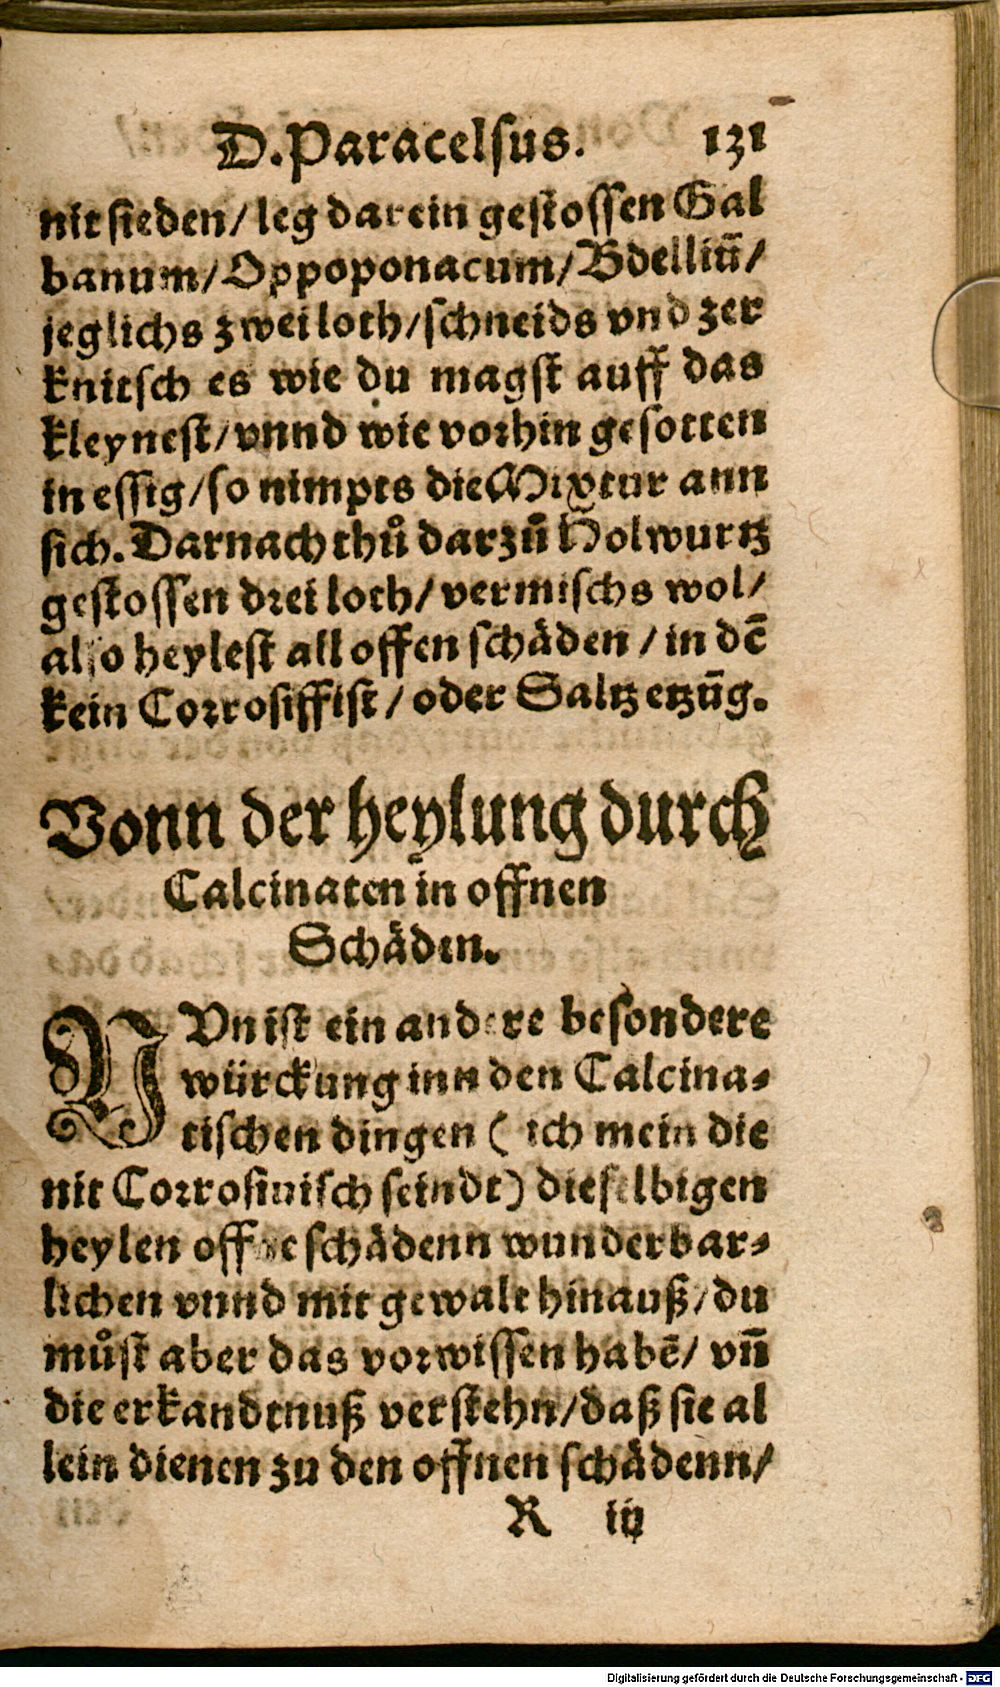 D. Paracelsus. 131
nit sieden/ leg darein gestossen Gal
banum/ Oppoponacum/ Bdelliū/
jeglichs zwei loth/ schneids vnd zer
knitsch es wie du magst auff das
kleynest/ vnnd wie vorhin gesotten
in essig/ so nimpts die Mixtur ann
sich. Darnach thů darzů Holwurtz
gestossen drei loth/ vermischs wol/
also heylest all offen schäden / in dē
kein Corrosiff ist / oder Saltz etzūg.
Vonn der heylung durch
Calcinaten in offnen
Schäden.
NVn ist ein andere besondere
würckung inn den Calcina-
tischen dingen ( ich mein die
nit Corrosiuisch seindt) dieselbigen
heylen offne schädenn wunderbar-
lichen vnnd mit gewalt hinauß/ du
můst aber das vorwissen habē/ vn̄
die erkandtnuß verstehn/ daß sie al
lein dienen zu den offnen schädenn/
R iij
Digitalisierung gefördert durch die Deutsche Forschungsgemeinschaft - DFG